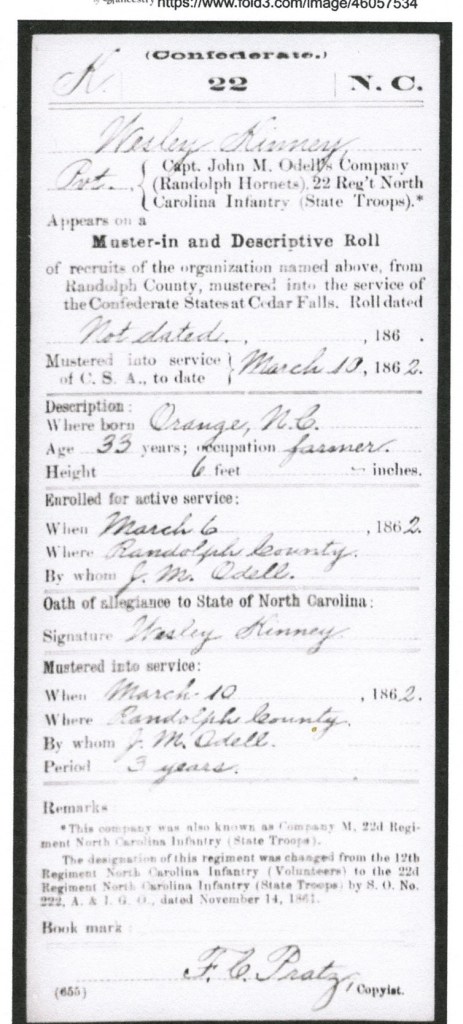 https://www.fold3.com/image/46057534
(Confederate.)
K. 22 N. C.
Wesley Kinney
Pvt. { Capt. John M. Odell's Company
(Randolph Hornets), 22 Reg't North
Carolina Infantry (State Troops).*
Appears on a
Muster-in and Descriptive Roll
of recruits of the organization named above, from
Randolph County, mustered into the service of
the Confederate States at Cedar Falls. Roll dated
Not dated. , 186 .
Mustered into service
of C. S. A., to date } March 10, 1862.
Description:
Where born Orange, N.C.
Age 33 years; occupation farmer.
Height 6 feet - inches.
Enrolled for active service:
When March 6 , 1862.
Where Randolph County.
By whom J. M. Odell.
Oath of allegiance to State of North Carolina:
Signature Wesley Kinney
Mustered into service:
When March 10 , 1862.
Where Randolph County.
By whom J. M. Odell.
Period 3 years.
Remarks
*This company was also known as Company M, 22d Regi-
ment North Carolina Infantry (State Troops).
The designation of this regiment was changed from the 12th
Regiment North Carolina Infantry (Volunteers) to the 22d
Regiment North Carolina Infantry (State Troops) by S. O. No.
222, A. & I. G. O., dated November 14, 1861.
Book mark:
F. C. Pratz, Copyist.
(655)